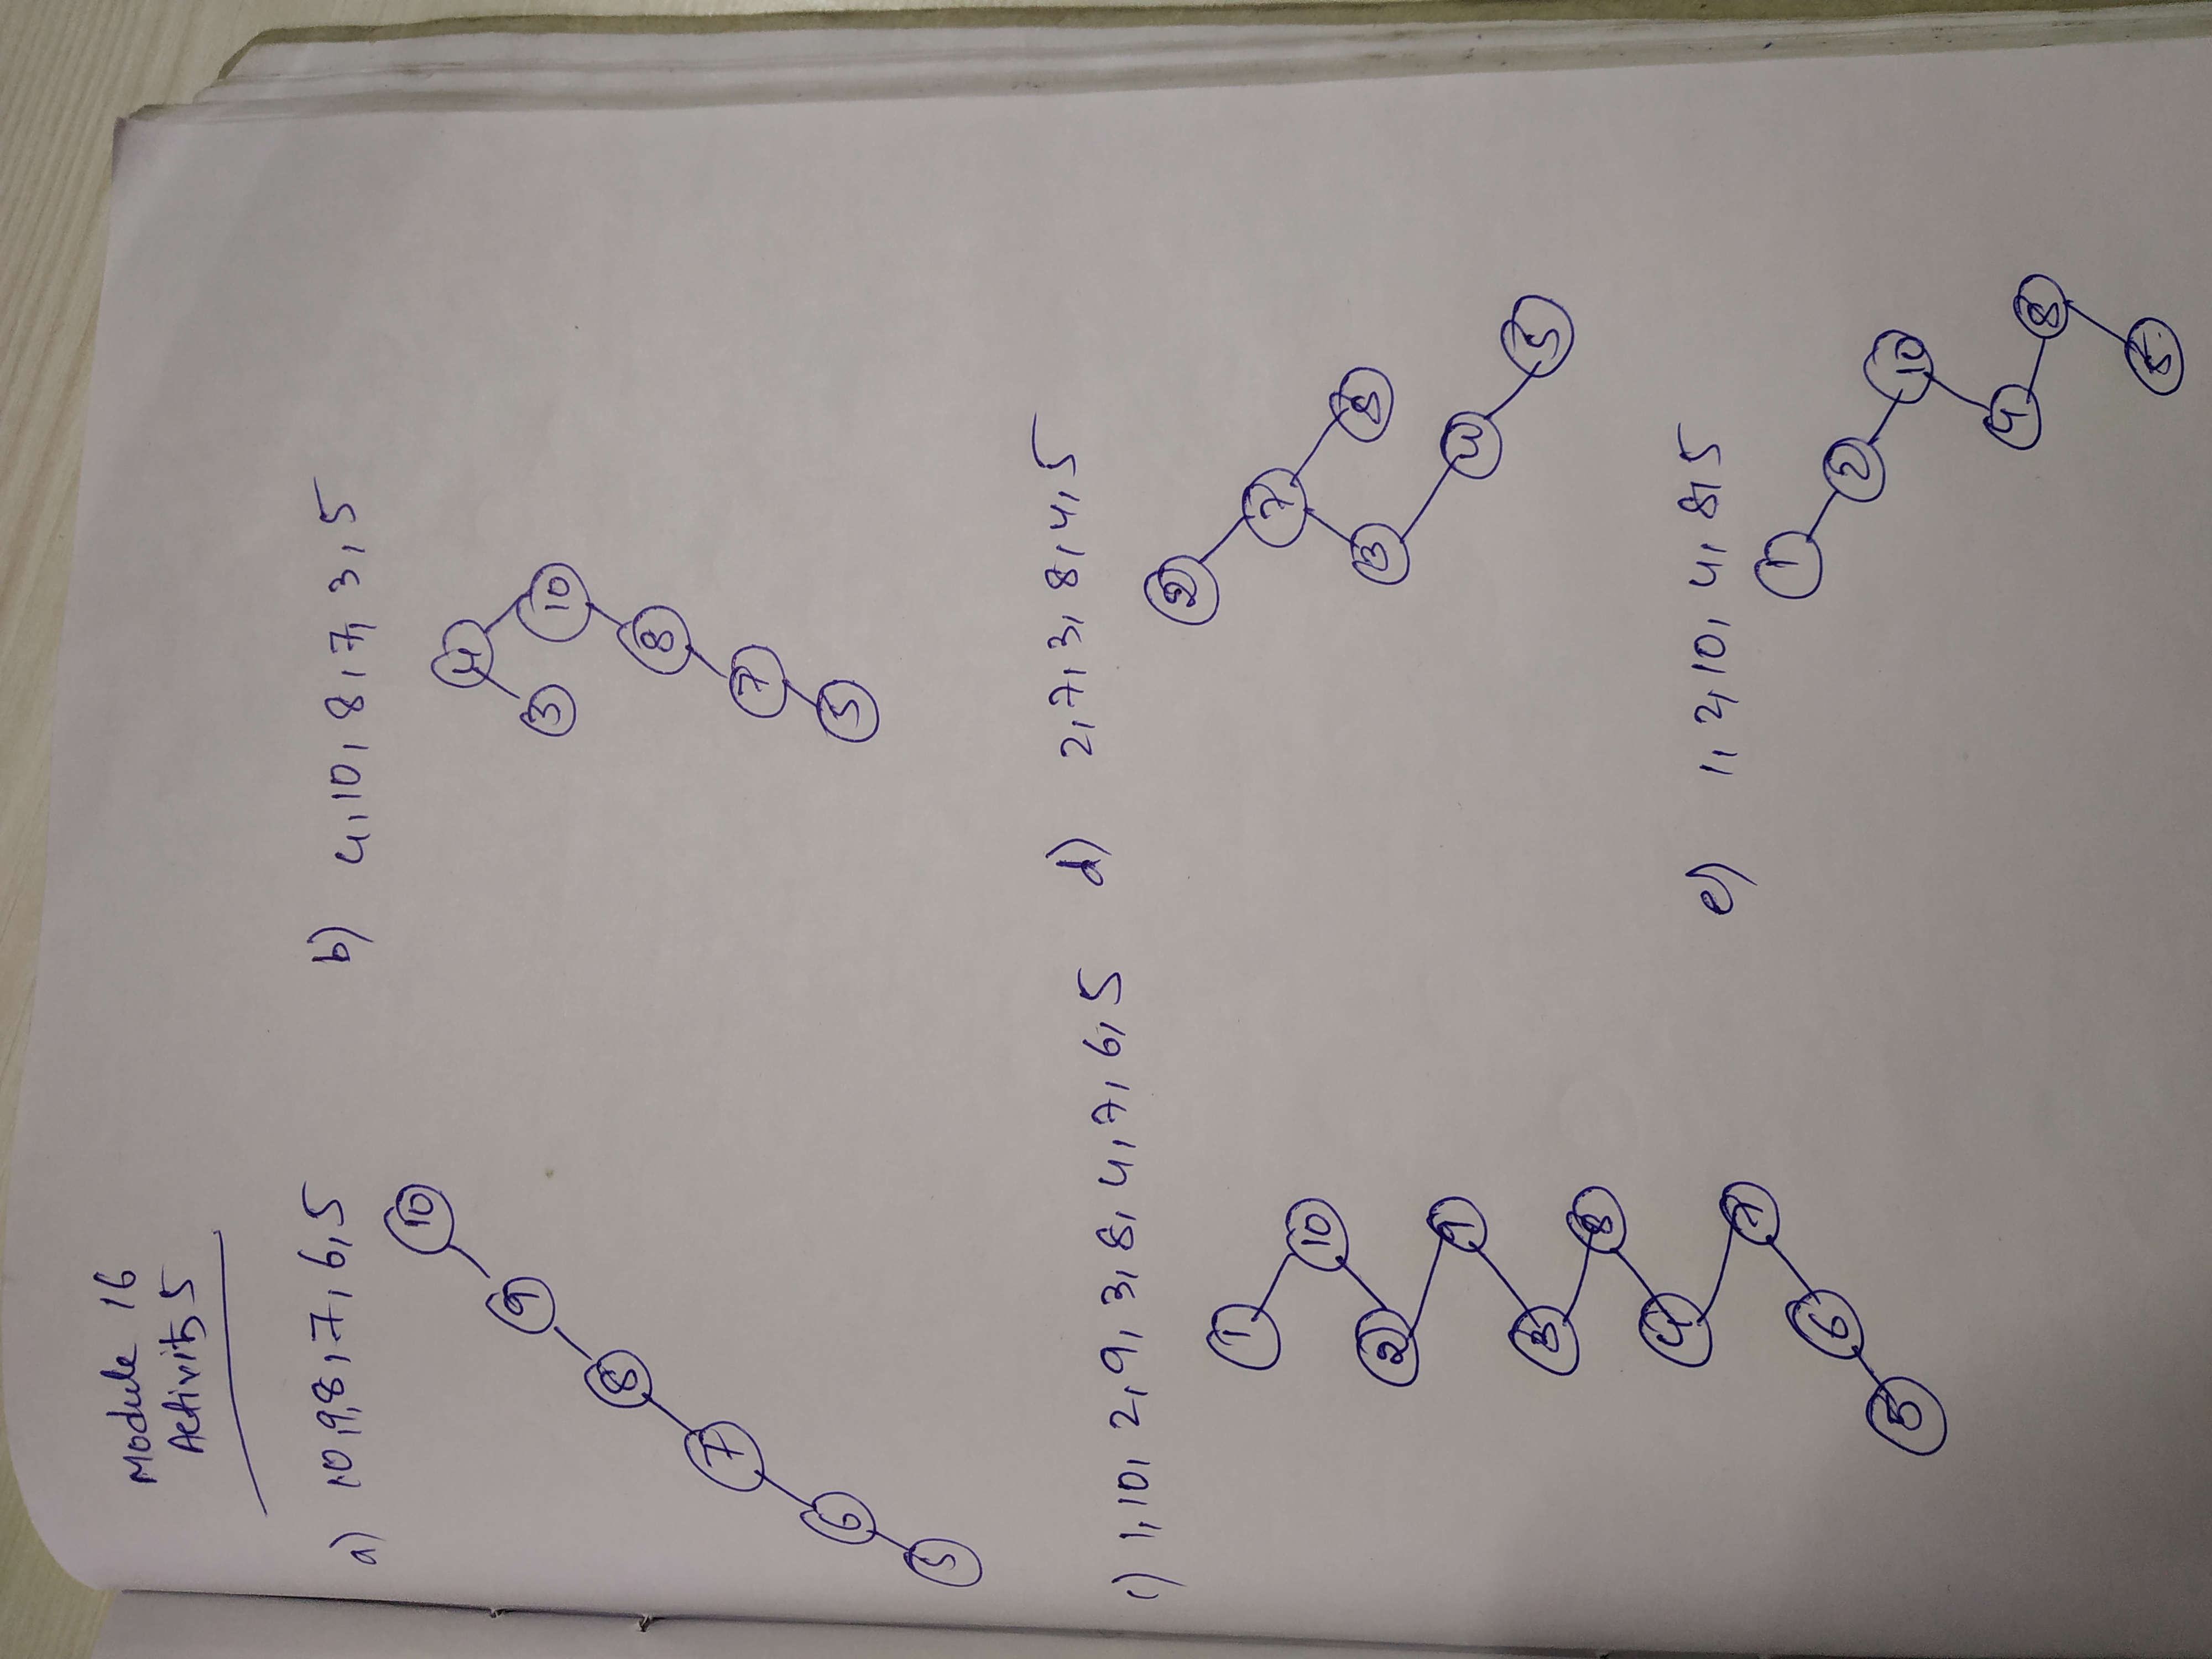 Module 16
Activity 5
a) 10, 9, 8, 7, 6, 5
10
9
8
7
6
5
b) 4, 10, 8, 7, 3, 5
4
3 10
8
7
5
c) 1, 10, 2, 9, 3, 8, 4, 7, 6, 5
1
10
2
9
3
8
4
7
6
5
d) 2, 7, 3, 8, 4, 5
2
7
3 8
4
5
e) 1, 2, 10, 4, 8, 5
1
2
10
4
8
5